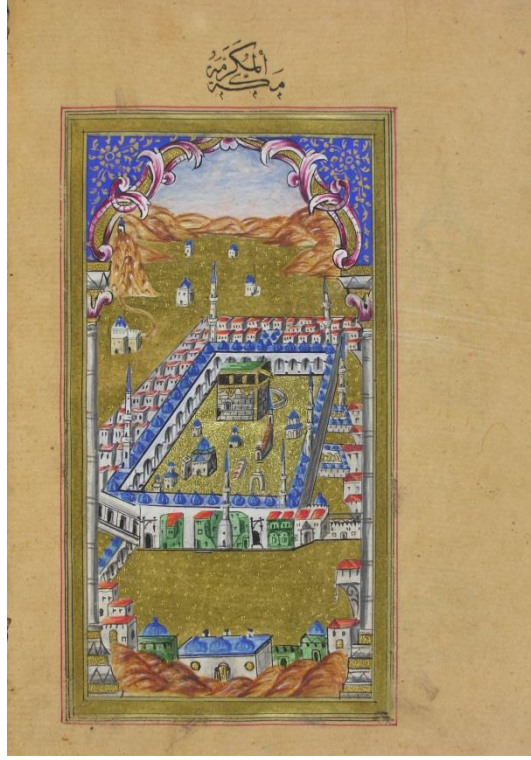 مكة المكرمة